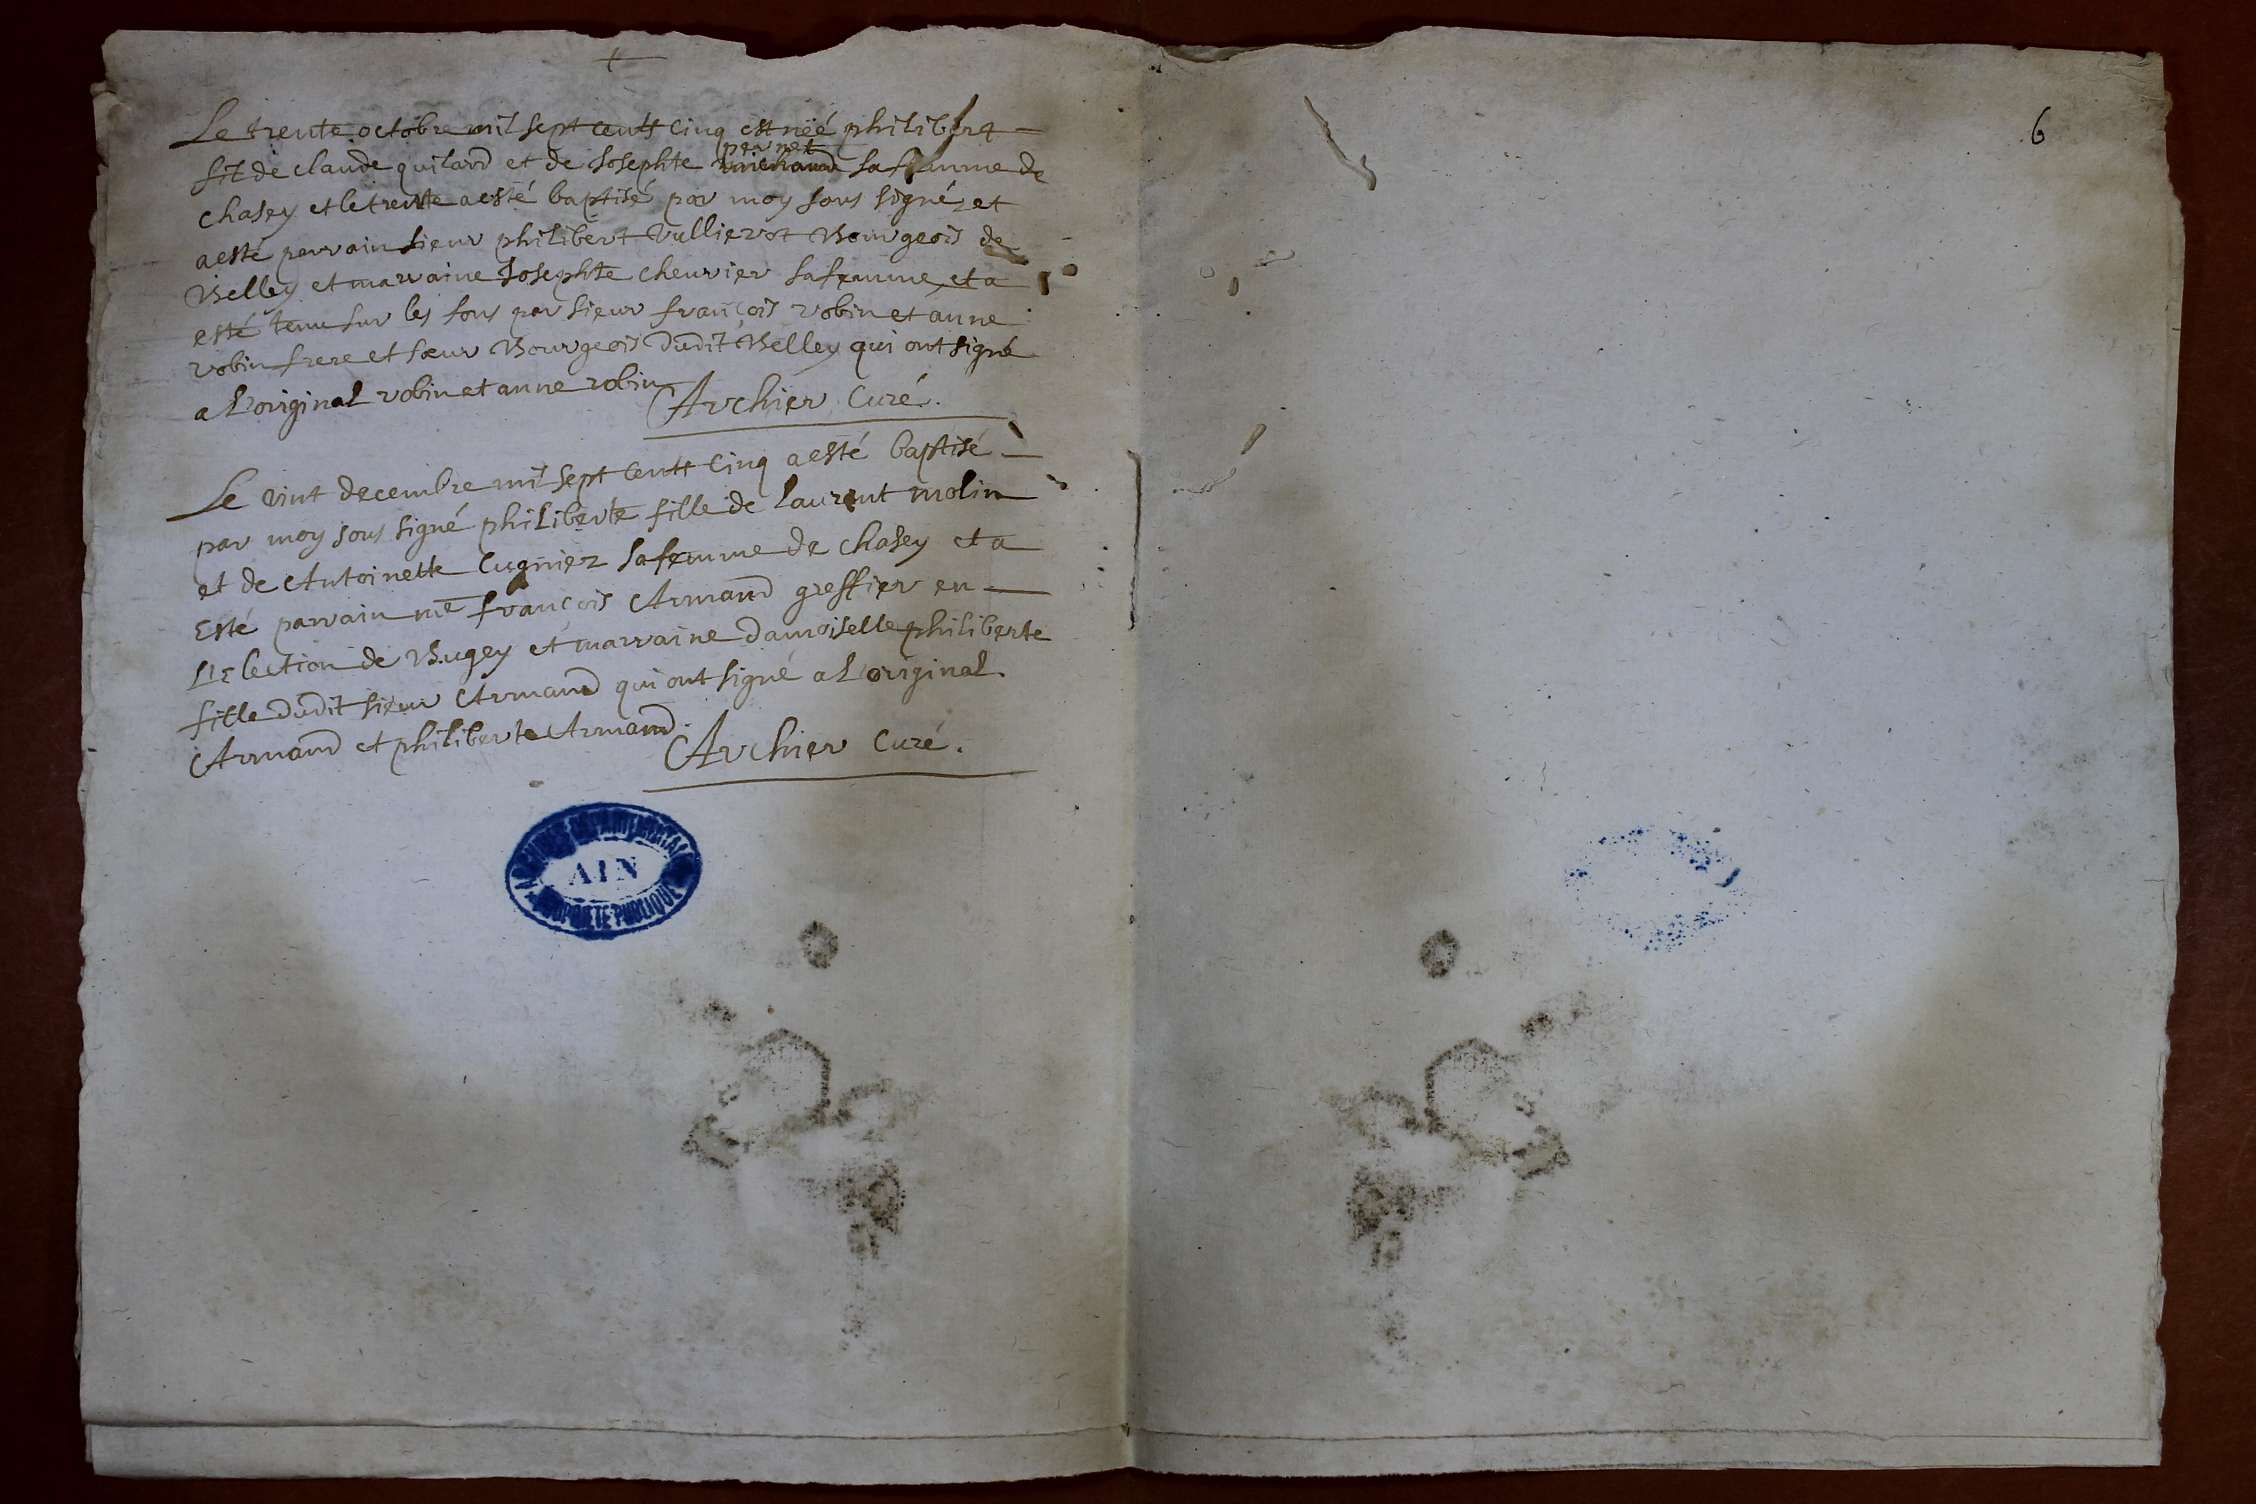 Le trente octobre mil sept centt cinq est néé philibert
filz de claude quilard et de Josephte pernet sa femme de
chasey et le trente a esté baptisé par moy sous signé et
a esté parrain sieur philibert Vullierot Bourgeois de
Belley et marraine Josephte cheuvrier sa femme, et a
esté tenu sur les fons par sieur françois robin et anne
robin frere et sœur Bourgeois dudit Belley qui ont signé
a L'original robin et anne robin
Archier Curé.
Le vint decembre mil sept centt cinq a esté baptisé
par moy sous signé philiberte fille de Laurent molin
et de Antoinette Cugniez sa femme de chasey et a
Esté parrain me françois Armand greffier en
L'Election de Bugey et marraine damoiselle philiberte
fille dudit sieur Armand qui ont signé a L'original.
Armand et philiberte Armand.
Archier Curé.
ARCHIVES DEPARTEMENTALES
AIN
PROPRIETE PUBLIQUE
6